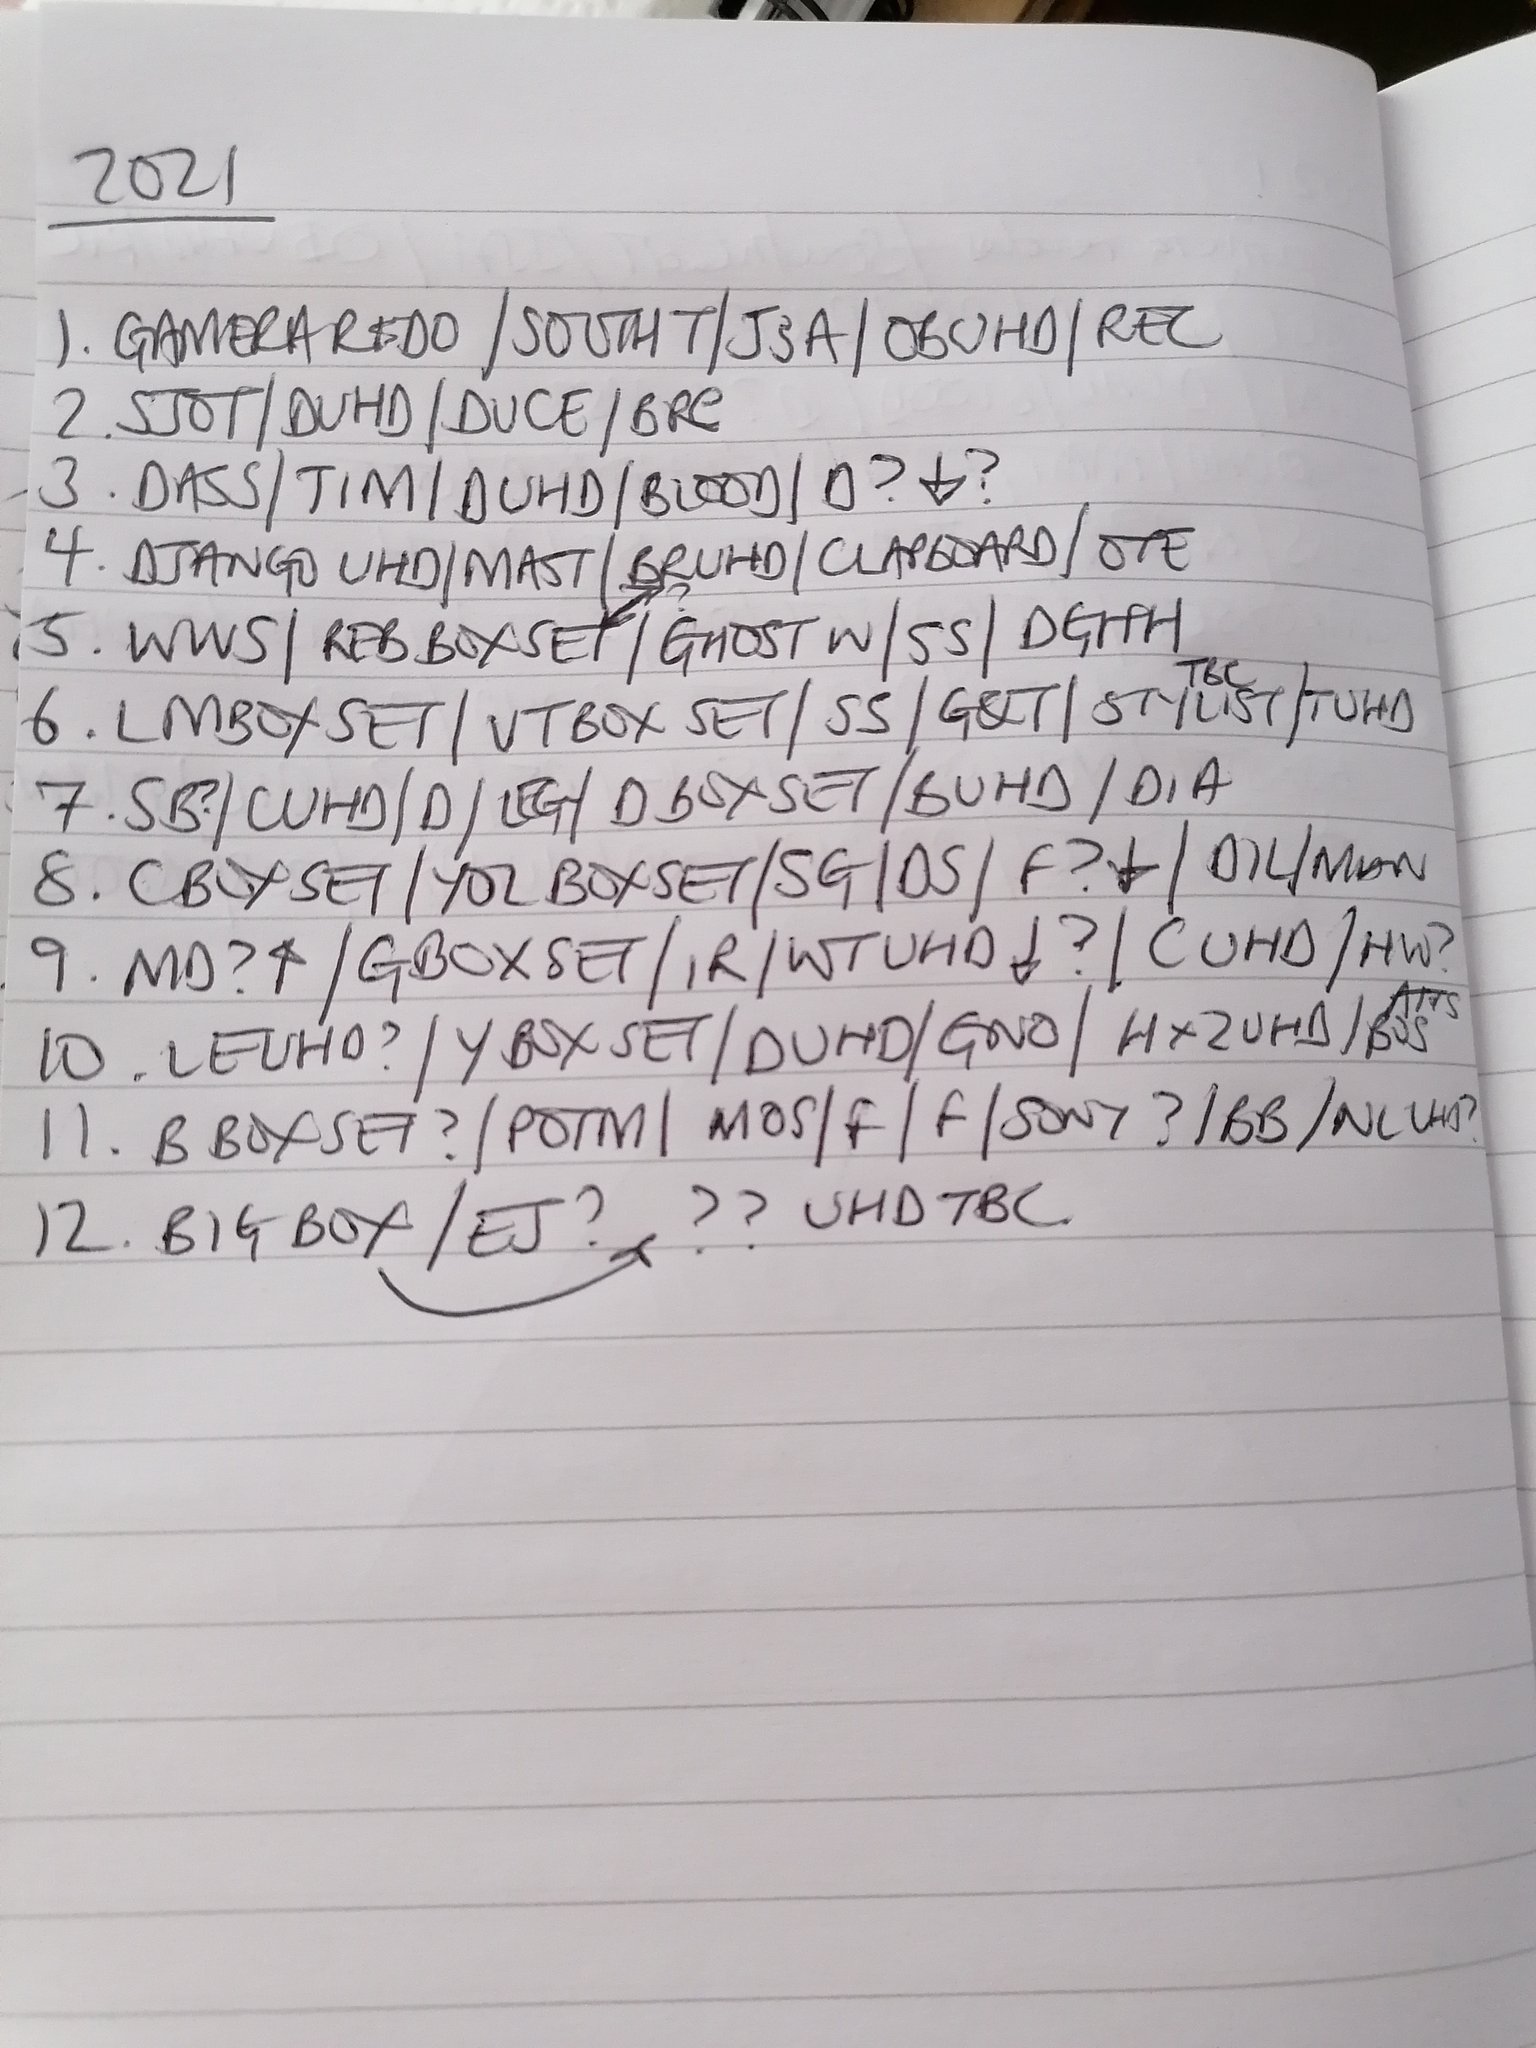 2021
1. GAMERA REDO / SOUTH T / JBA / OBUHD / REC
2. SJOT / DUHD / DUCE / BRC
3. DASS / TIM / DUHD / BLOOD / D? ↓?
4. DJANGO UHD / MAST / BRUHD / CLAPBOARD / OTE
?
5. WWS / REB BOX SET / GHOST W / SS / DGTTH
TBC
6. LMBOX SET / VT BOX SET / SS / G&T / STYLIST / TUHD
7. SB? / CUHD / D / LEG / D BOX SET / BUHD / DIA
8. C BOX SET / YOZ BOX SET / SG / DS / F? ↓ / DIL /
9. MD? ↑ / G BOX SET / IR / WTUHD ↓? / CUHD / HW?
10. LEUHD? / Y BOX SET / DUHD / GNO / HX2UHD /
11. B BOX SET? / POTM / MOS / F / F / SONY? / BB / NLUHD?
12. BIG BOX / EJ? ?? UHD TBC